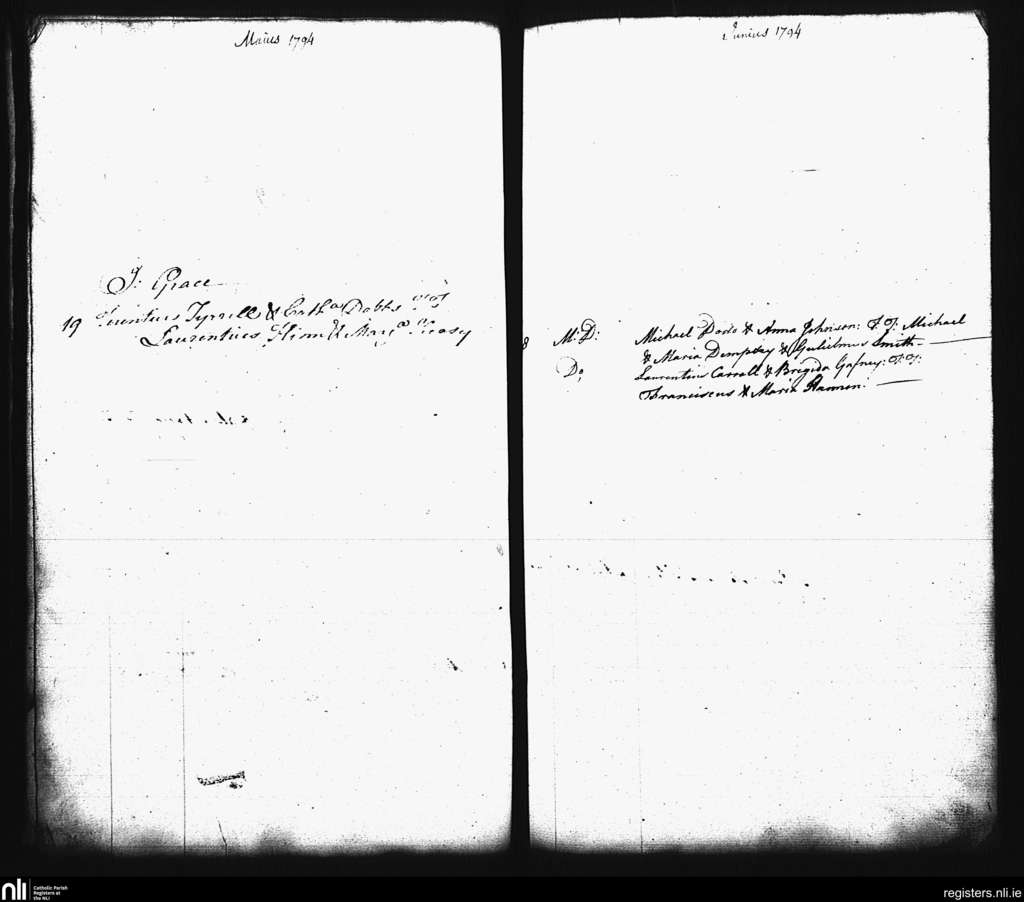 Maius 1794
J: Grace
19 Tyrrell & Dobbs
Laurentius & Mar
Junius 1794
8 M: D: Michael & Anna Johnson: T. T: Michael
& Maria Dempsey & Gulielmus Smith
Do, Laurentius Carroll & Brigida Gafney: T: T:
Franciscus & Maria
nli
Catholic Parish
Registers at
the NLI
registers.nli.ie